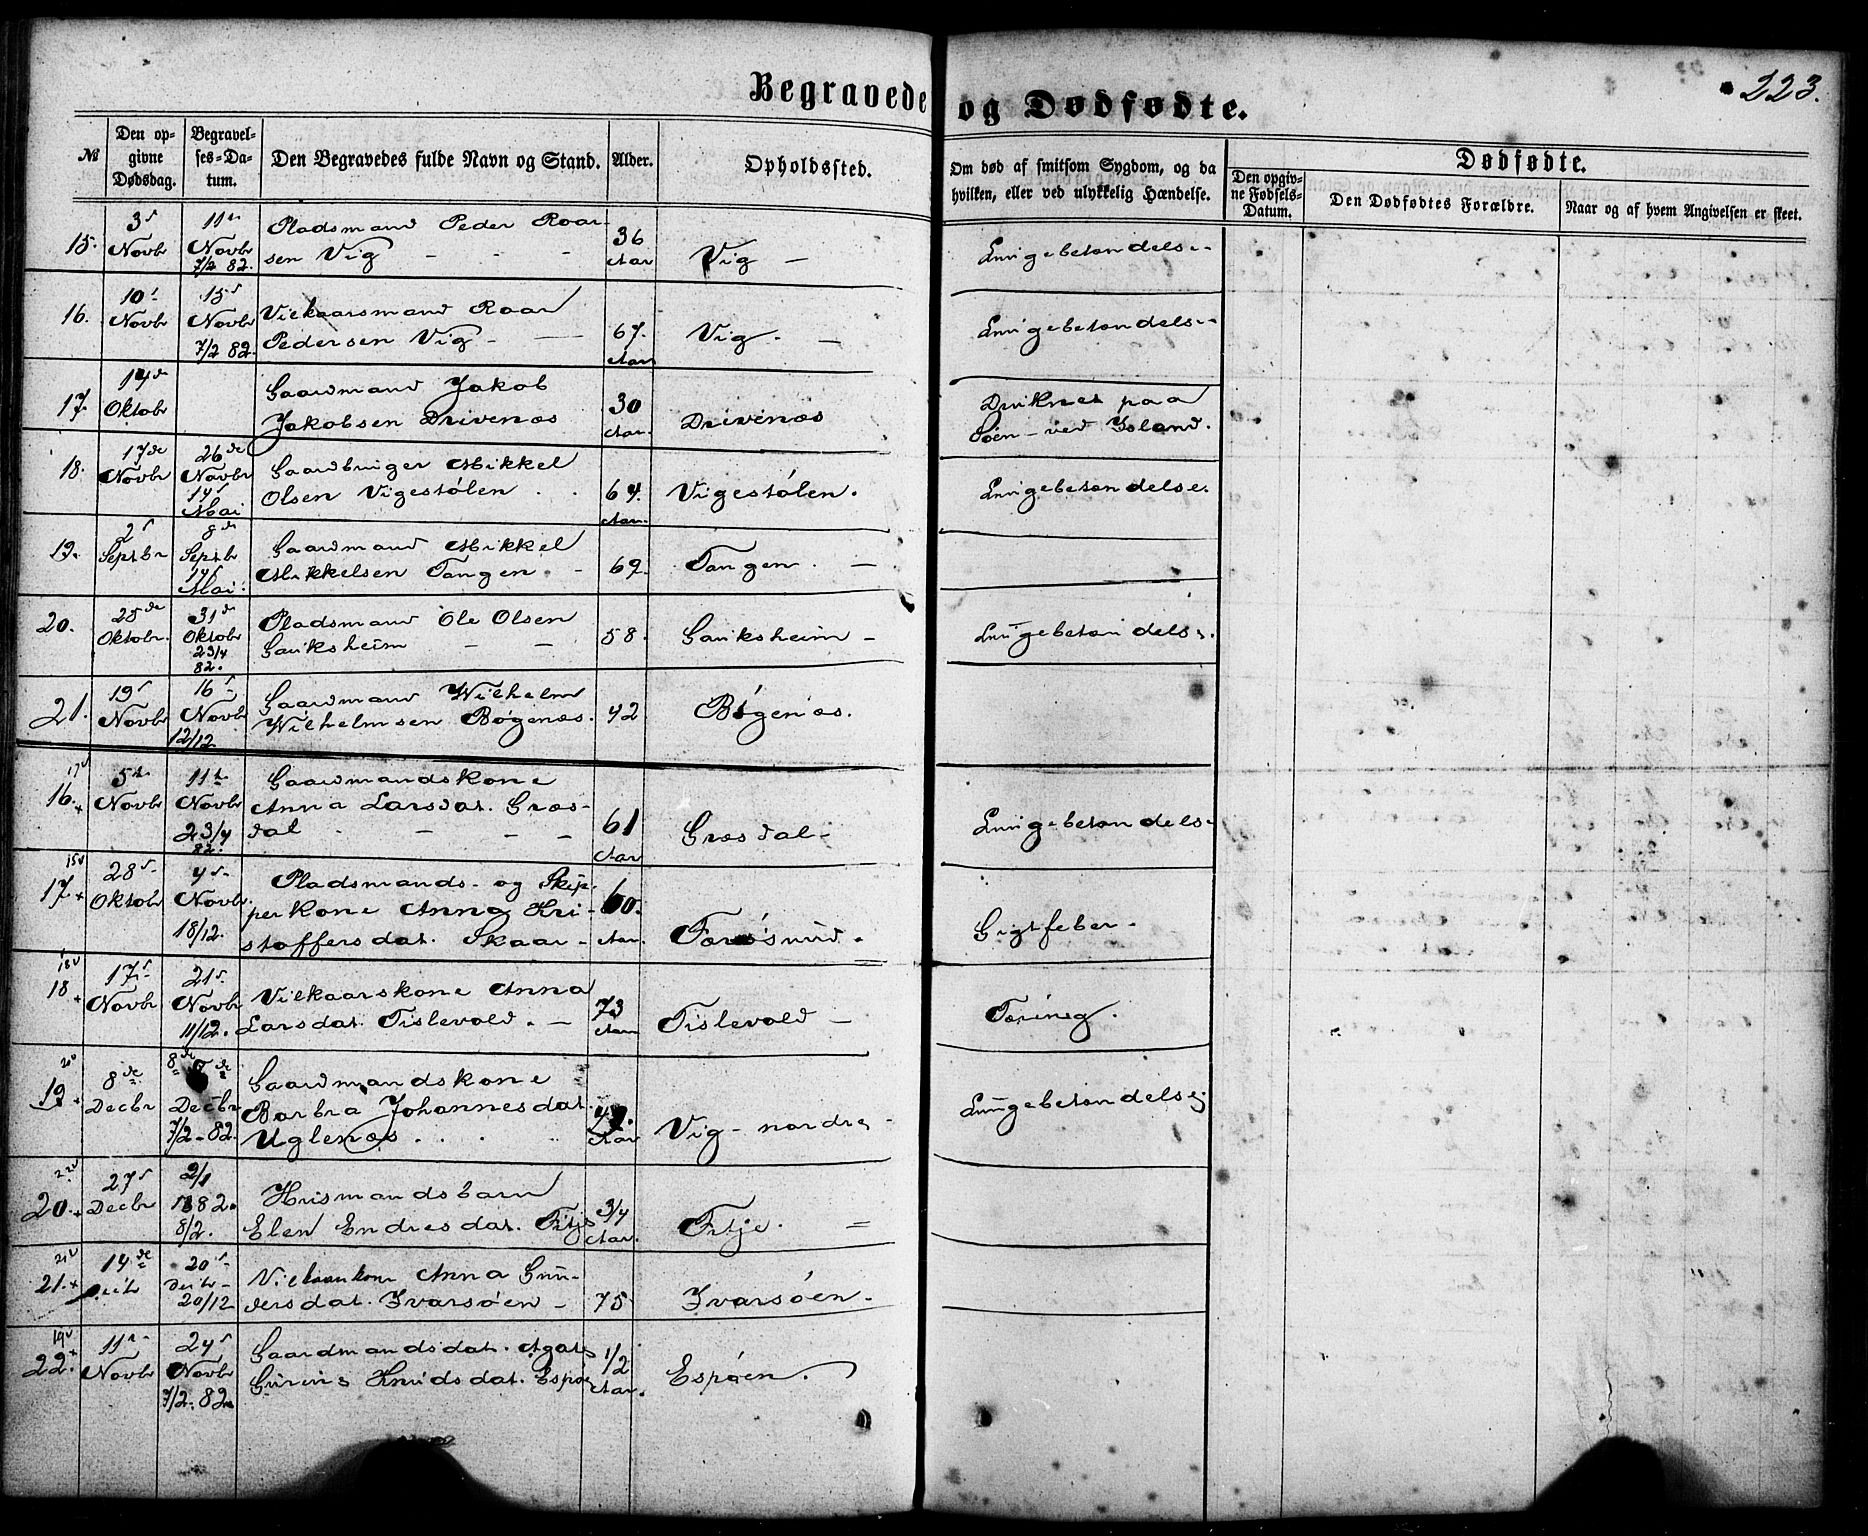 Begravede og Dødfødte.
223.
№
Den opgivne Dødsdag.
Begravelses-Datum.
Den Begravedes fulde Navn og Stand.
Alder.
Opholdssted.
Om død af smitsom Sygdom, og da hvilken, eller ved ulykkelig Hændelse.
Dødfødte.
Den opgivne Fødsels-Datum.
Den Dødfødtes Forældre.
Naar og af hvem Angivelsen er skeet.
15. 3 Novbr 11 Novbr 7/2 82. Pladsmand Peder Roarsen Vig - - - 36 Aar Vig - Lungebetændelse
16. 10 Novbr 15 Novbr 7/2 82. Vilkaarsmand Roar Pedersen Vig - 67. Aar Vig. - Lungebetændelse
17. 14de Oktobr Gaardmand Jakob Jakobsen Drivenæs 30 Aar. Drivenæs Druknet paa Søen - ved Island.
18. 17de Novbr 26de Novbr 14 Mai Gaardbruger Mikkel Olsen Vigestølen . . 64. Aar. Vigestølen. Lungebetændelse.
19. 2 Septbr 8de Septbr 14 Mai. Gaardmand Mikkel Mikkelsen Tangen. - 69. Tangen. -
20. 25de Oktobr. 31de Oktobr 23/4 82. Pladsmand Ole Olsen Gauksheim - - 58. Gauksheim - Lungebetændelse.
21. 19 Novbr 16 Novbr 12/12 Gaardmand Wilhelm Wilhelmsen Bøgenæs. 42 Bøgenæs.
17v 16.+ 5te Novbr 11te Novbr 23/4 82. Gaardmandskone Anna Larsdat. Græsdal - - - 61 Aar Græsdal - Lungebetændelse
15v 17.+ 28 Oktobr 4 Novbr. 18/12. Pladsmands- og Skipperkone Anna Kristoffersdat. Skaar - 60. Aar. Færøsund. Gigtfeber.
18v 18+ 17 Novbr 21 Novbr 11/12. Vilkaarskone Anna Larsdat. Tislevold. - 73 Aar Tislevold - Tæring.
20v 19+ 8de Decbr 8de Decbr 7/2 - 82. Gaardmandskone Barbra Johannesdat. Uglenæs . . . Aar Vig - nordre - Lungebetændelse
22v 20.+ 27 Decbr 2/1 1882. 8/2. Husmandsbarn Elen Endresdat. Fitje 3/4 Aar. Fitje. =
21v 21.+ 14de 20 Decbr - 20/12 Vilkaarkone Anna Gundersdat. Ivarsøen - 75 Ivarsøen -
19v 22.+ 11 Novbr 24 Novbr 7/2. 82. Gaardmandsdat. Agate Gurine Knudsdat. Espøen 1/2 Aar. Espøen.